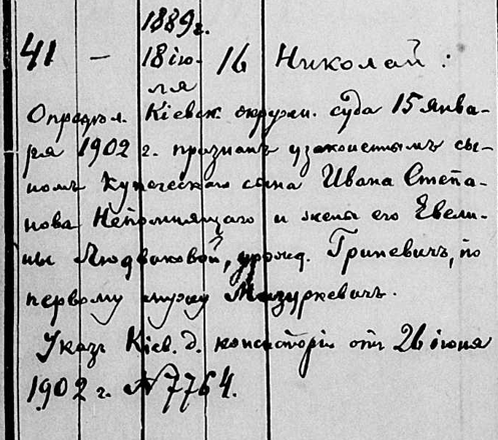 1889 г.
41 — 18 ію- 16 Николай:
ля
Опредѣл. Кіевск. окружн. суда 15 янва-
ря 1902 г. признанъ узаконеннымъ сы-
номъ купеческаго сына Ивана Степа-
нова Непомнящаго и жены его Евели-
ны Людвиковой, урожд. Гриневичъ, по
первому мужу Мазуркевичъ.
Указъ Кіев. д. консисторіи отъ 26 іюня
1902 г. №7764.